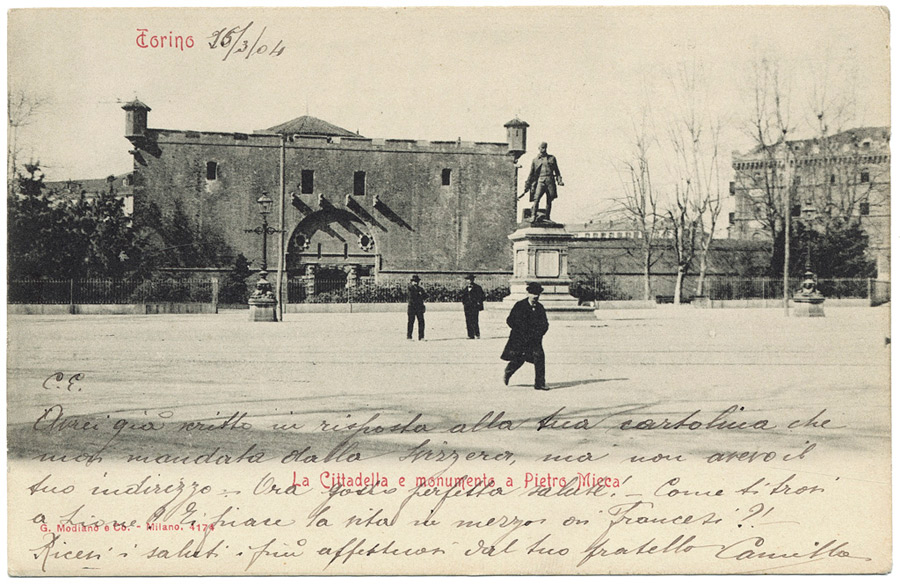 Torino 25/3/04
C. E.
Avrei già scritto in risposta alla tua cartolina che
mandata dalla Svizzera, ma non avevo il
tuo indirizzo - Ora godo perfetta salute! - Come ti trovi
La Cittadella e monumento a Pietro Micca
a Lione? Ti piace la vita in mezzo ai Francesi?!
G. Modiano e Co. - Milano. 4174
Ricevi i saluti i più affettuosi dal tuo fratello Camillo